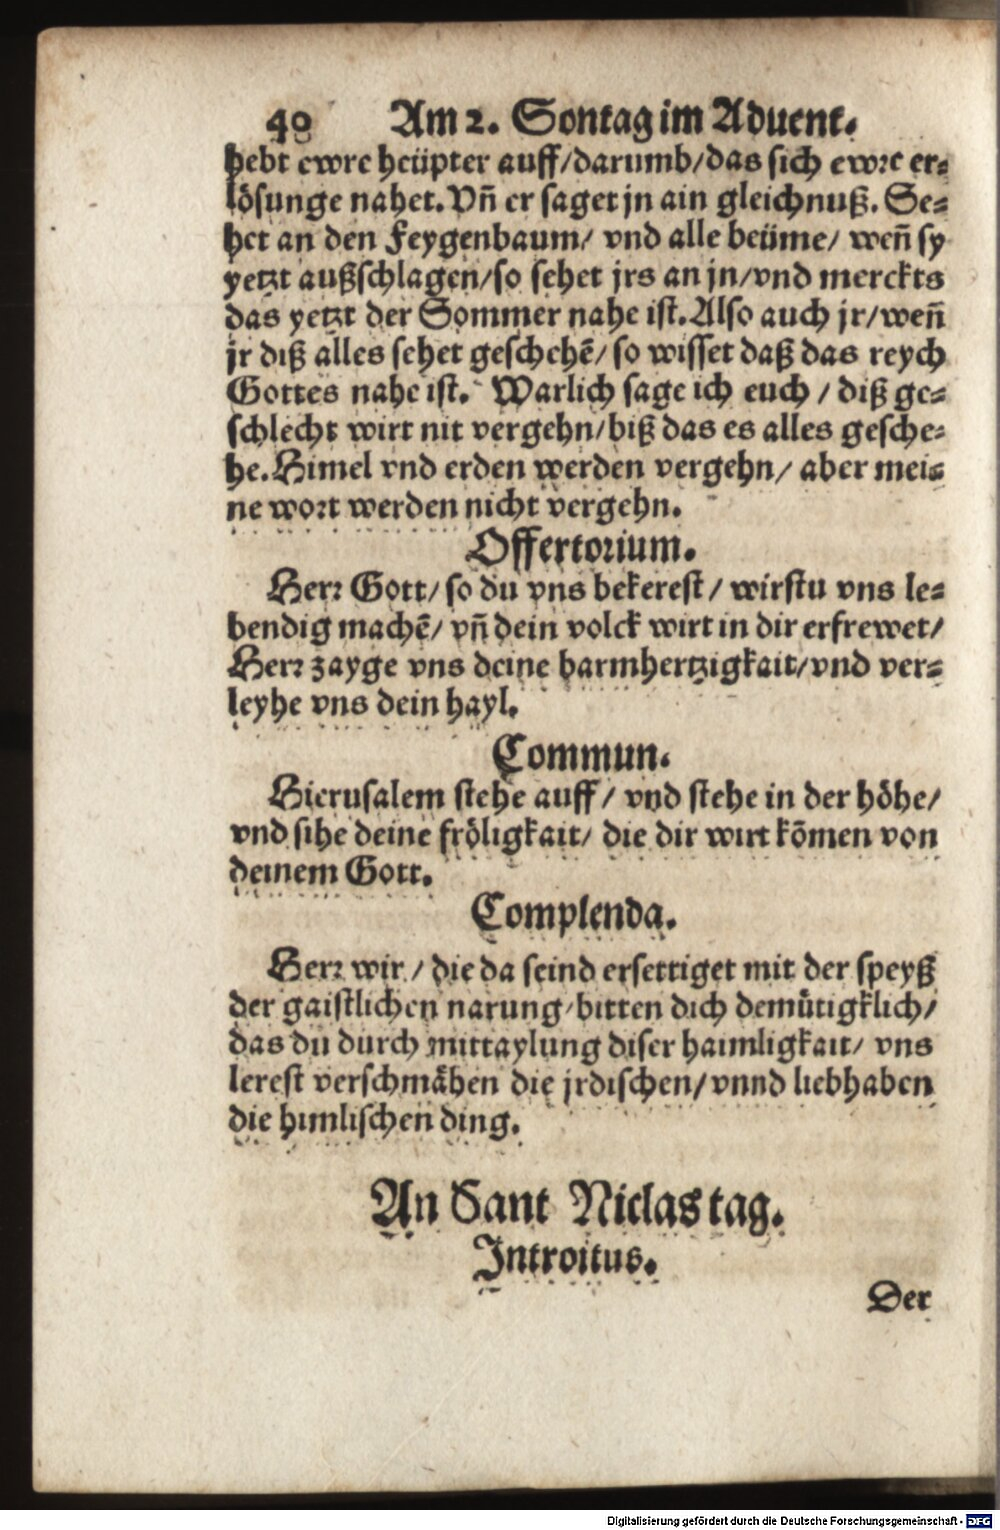 40 Am 2. Sontag im Aduent.
hebt ewre heüpter auff/darumb/das sich ewre er-
lösunge nahet. Vñ er saget jn ain gleichnuß. Se-
het an den Feygenbaum/ vnd alle beüme/ weñ sy
yetzt außschlagen/so sehet jrs an jn/vnd merckts
das yetzt der Sommer nahe ist. Also auch jr/weñ
jr diß alles sehet geschehẽ/ so wisset daß das reych
Gottes nahe ist. Warlich sage ich euch / diß ge-
schlecht wirt nit vergehn/biß das es alles gesche-
he. Himel vnd erden werden vergehn/ aber mei-
ne wort werden nicht vergehn.
Offertorium.
Herr Gott/ so du vns bekerest/ wirstu vns le-
bendig machẽ/ vñ dein volck wirt in dir erfrewet/
Herr zayge vns deine barmhertzigkait/vnd ver-
leyhe vns dein hayl.
Commun.
Hierusalem stehe auff/ vnd stehe in der höhe/
vnd sihe deine fröligkait/ die dir wirt kõmen von
deinem Gott.
Complenda.
Herr wir / die da seind ersettiget mit der speyß
der gaistlichen narung/bitten dich demütigklich/
das du durch mittaylung diser haimligkait/ vns
lerest verschmähen die jrdischen/vnnd liebhaben
die himlischen ding.
An Sant Niclas tag.
Introitus.
Der
Digitalisierung gefördert durch die Deutsche Forschungsgemeinschaft - DFG